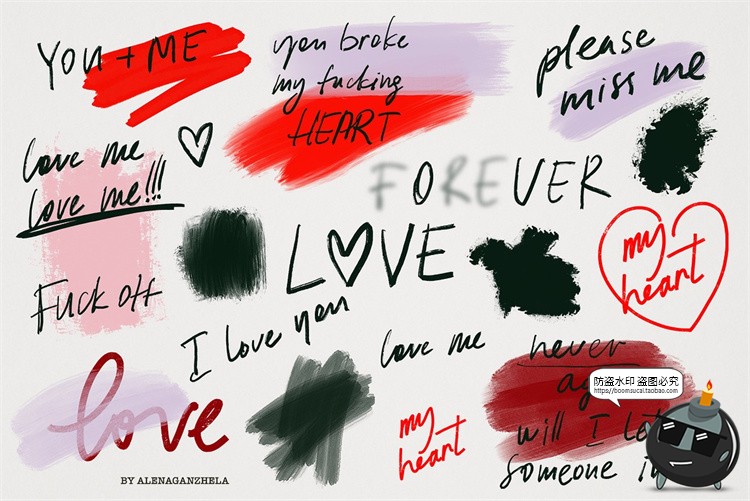 YOU + ME
you broke
my fucking
HEART
please
miss me
love me
love me!!!
FOREVER
LOVE
my
heart
Fuck off
I love you
love me
love
my
heart
never
will I
someone
防盗水印 盗图必究
https://boomsucai.taobao.com
BY ALENAGANZHELA